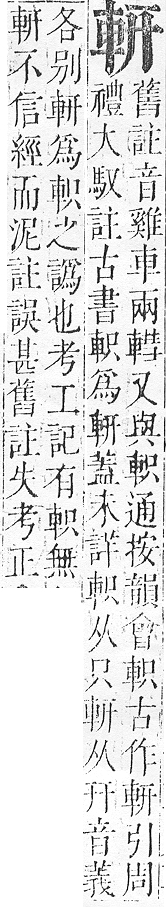 軿
舊註音雞車兩轊又與軹通按韻會軹古作軿引周
禮大馭註古書軹爲軿蓋未詳軹从只軿从幵音義
各別軿爲軹之譌也考工記有軹無
軿不信經而泥註誤甚舊註失考正